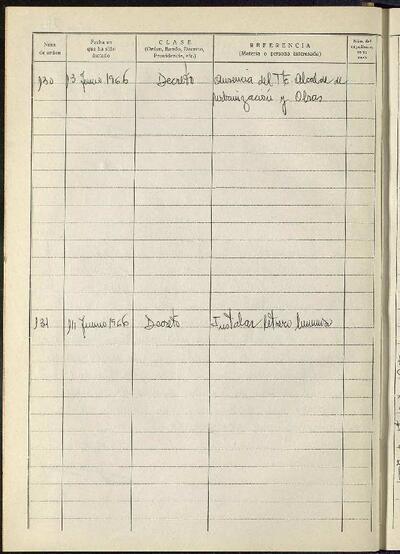 Núm. de orden
Fecha en que ha sido dictado
CLASE
(Orden, Bando, Decreto, Providencia, etc.)
REFERENCIA
(Materia o persona interesada)
Núm. del
130 13 Junio 1966 Decreto Ausencia del Tte. Alcalde de
Urbanización y Obras
131 14 Junio 1966 Decreto Instalar letrero luminoso